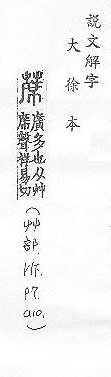 說文解字
大徐本
蓆
廣多也从艸
席聲祥易切
(艸部.